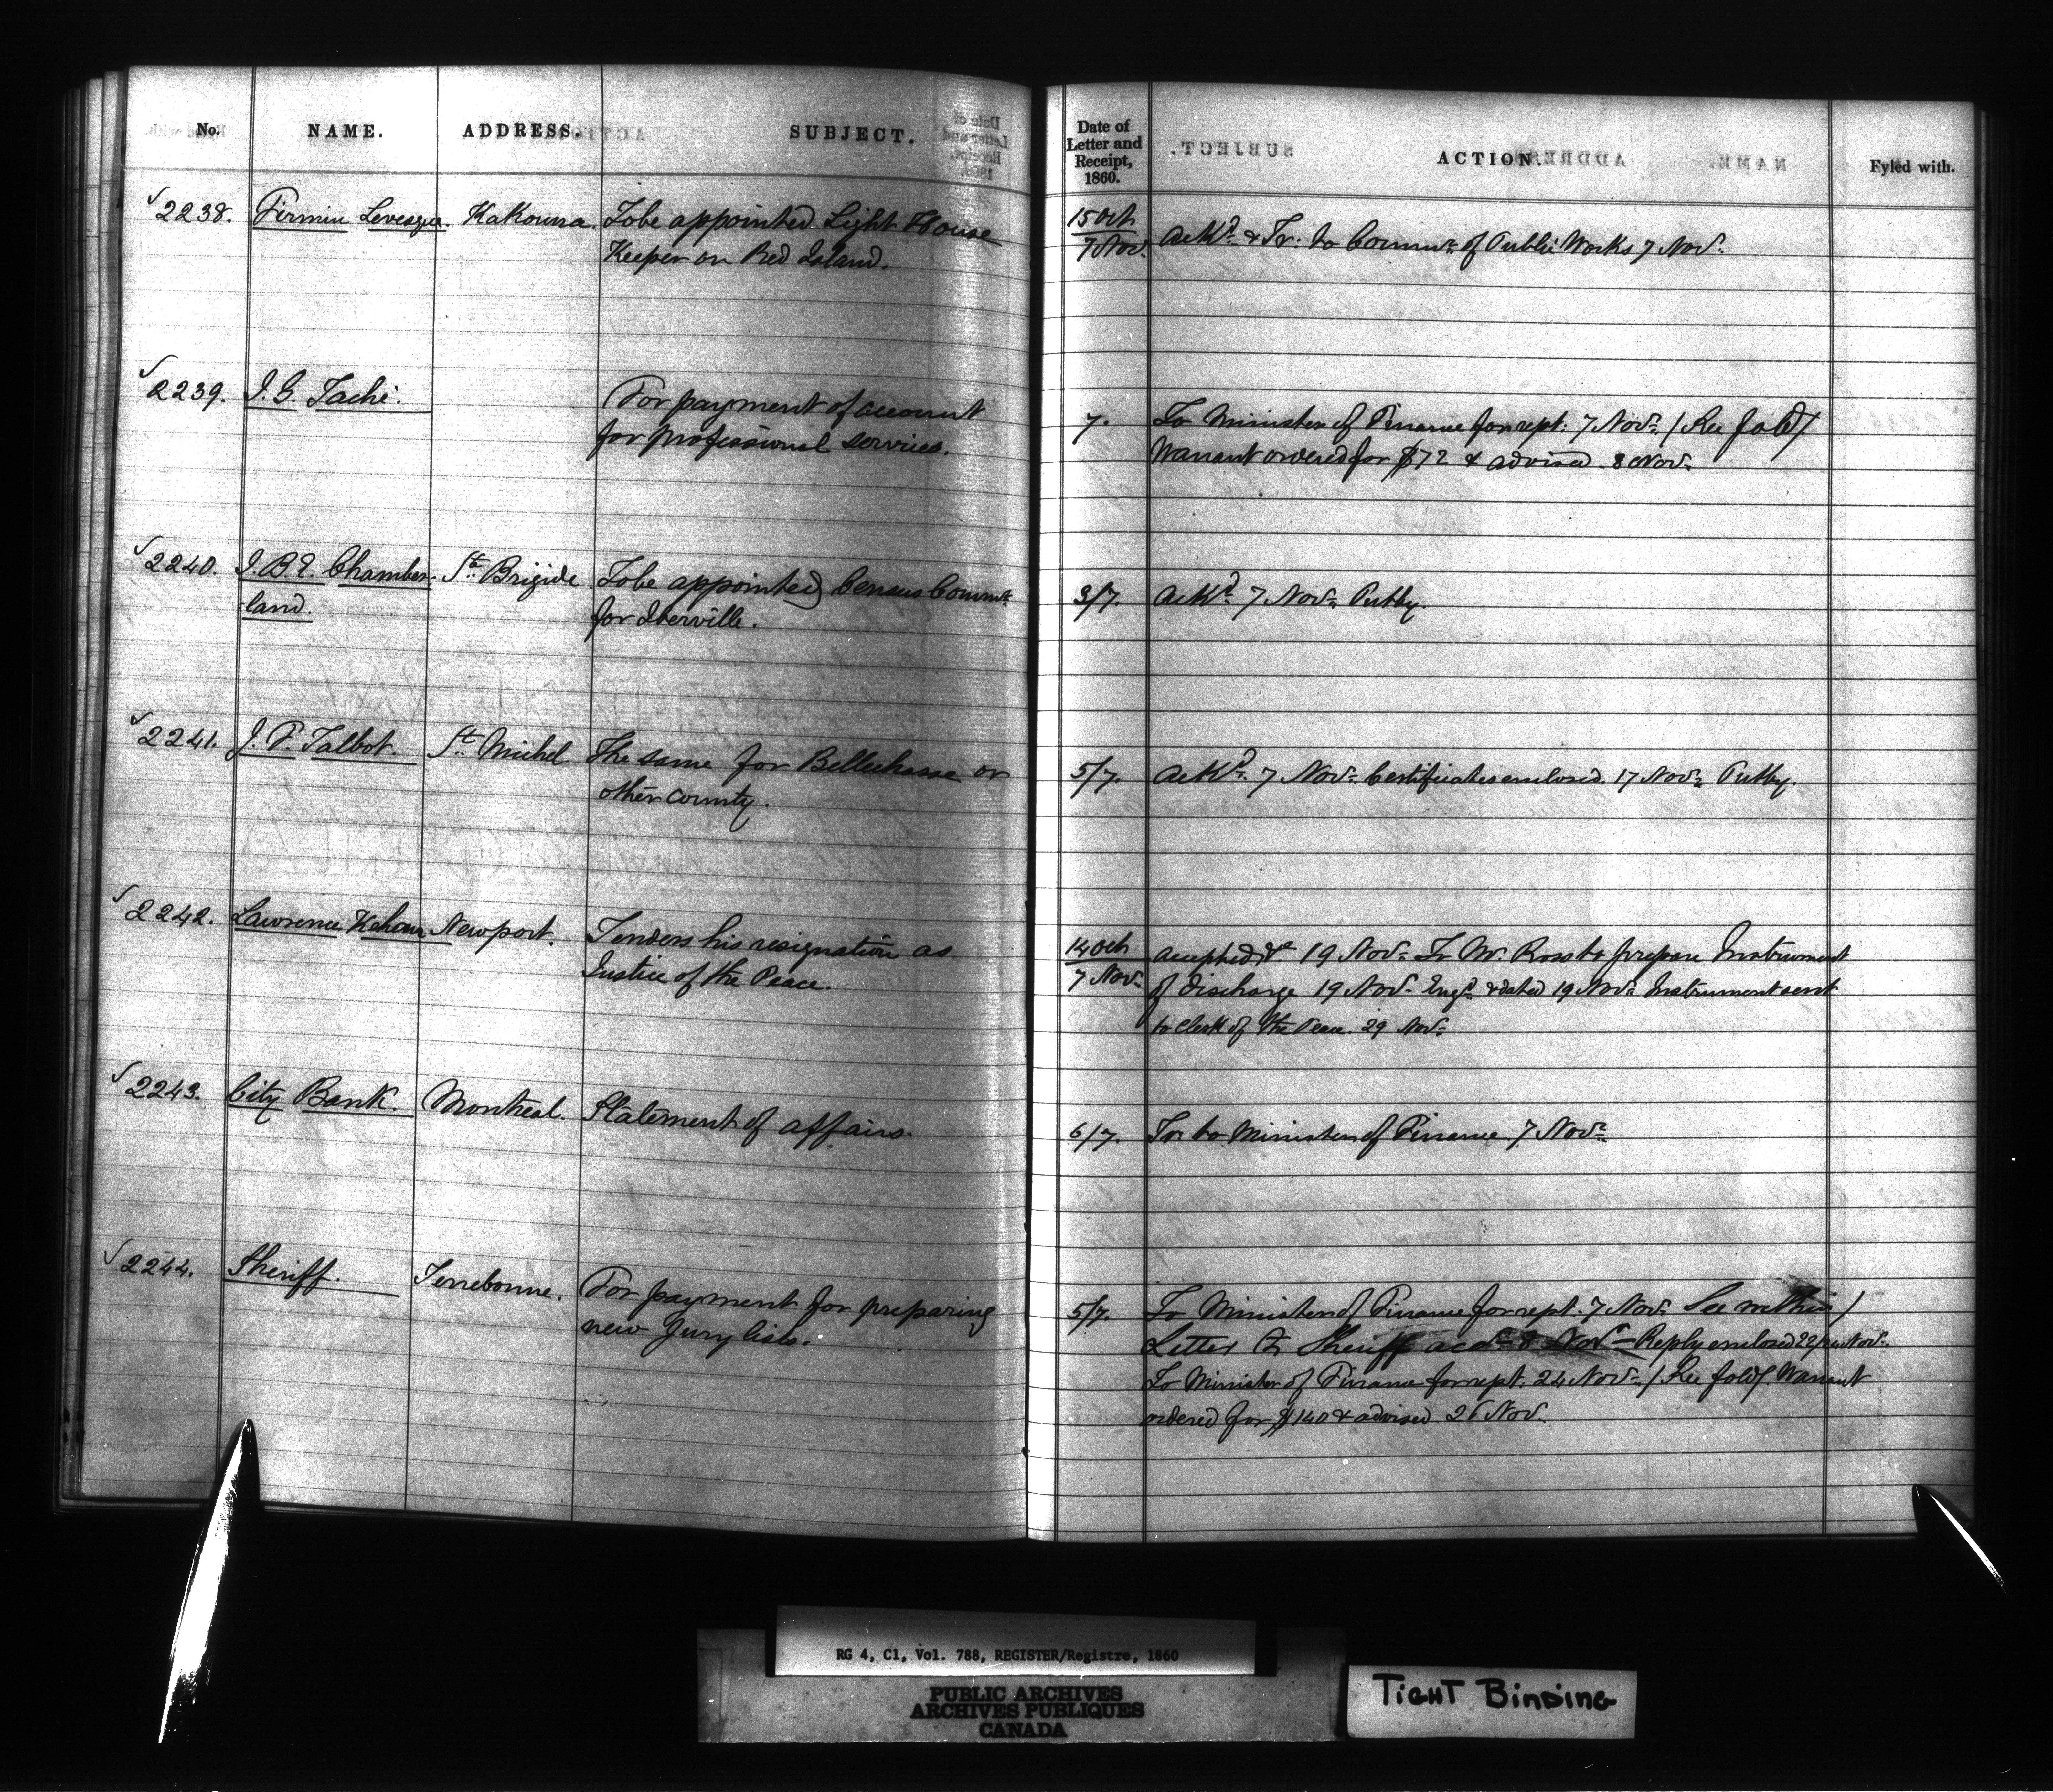 No. NAME. ADDRESS. SUBJECT. Date of Letter and Receipt, 1860. ACTION. Fyled with.
2238. Firmin Levesque. Kakouna. To be appointed Light House 15 Oct
Keeper on Red Island. 7 Nov. Ackd. & Tr. to Commr. of Public Works 7 Novr.
2239. J. G. Taché. For payment of account 7. To Minister of Finance for rept. 7 Novr. / See fold /
for professional services. Warrant ordered for $72 & advised 8 Novr.
2240. J. B. E. Chamber- Ste. Brigide To be appointed Census Commr. 3/7. Ackd. 7 Novr.
land. for Iberville.
2241. J. P. Talbot. St. Michel The same for Bellechasse or 5/7. Ackd. 7 Novr. Certificates enclosed 17 Novr.
other county.
2242. Lawrence Newport. Tenders his resignation as 14 Oct accepted &c 19 Novr. To Mr. Ross to prepare Instrument
Justice of the Peace. 7 Novr. of discharge 19 Novr. Engd. & dated 19 Novr. Instrument sent
to Clerk of the Peace. 29 Novr.
2243. City Bank. Montreal. Statement of affairs. 6/7. Tr. to Minister of Finance 7 Novr.
2244. Sheriff. Terrebonne. For payment for preparing 5/7. To Minister of Finance for rept. 7 Novr. See within /
new Jury lists. Letter to Sheriff acd. 8 Novr. Reply enclosed 22/24 Novr.
To Minister of Finance for rept. 24 Novr. / See fold / Warrant
ordered for $140 & advised 26 Nov.
RG 4, C1, Vol. 788, REGISTER/Registre, 1860
PUBLIC ARCHIVES
ARCHIVES PUBLIQUES
CANADA
TIGHT BINDING